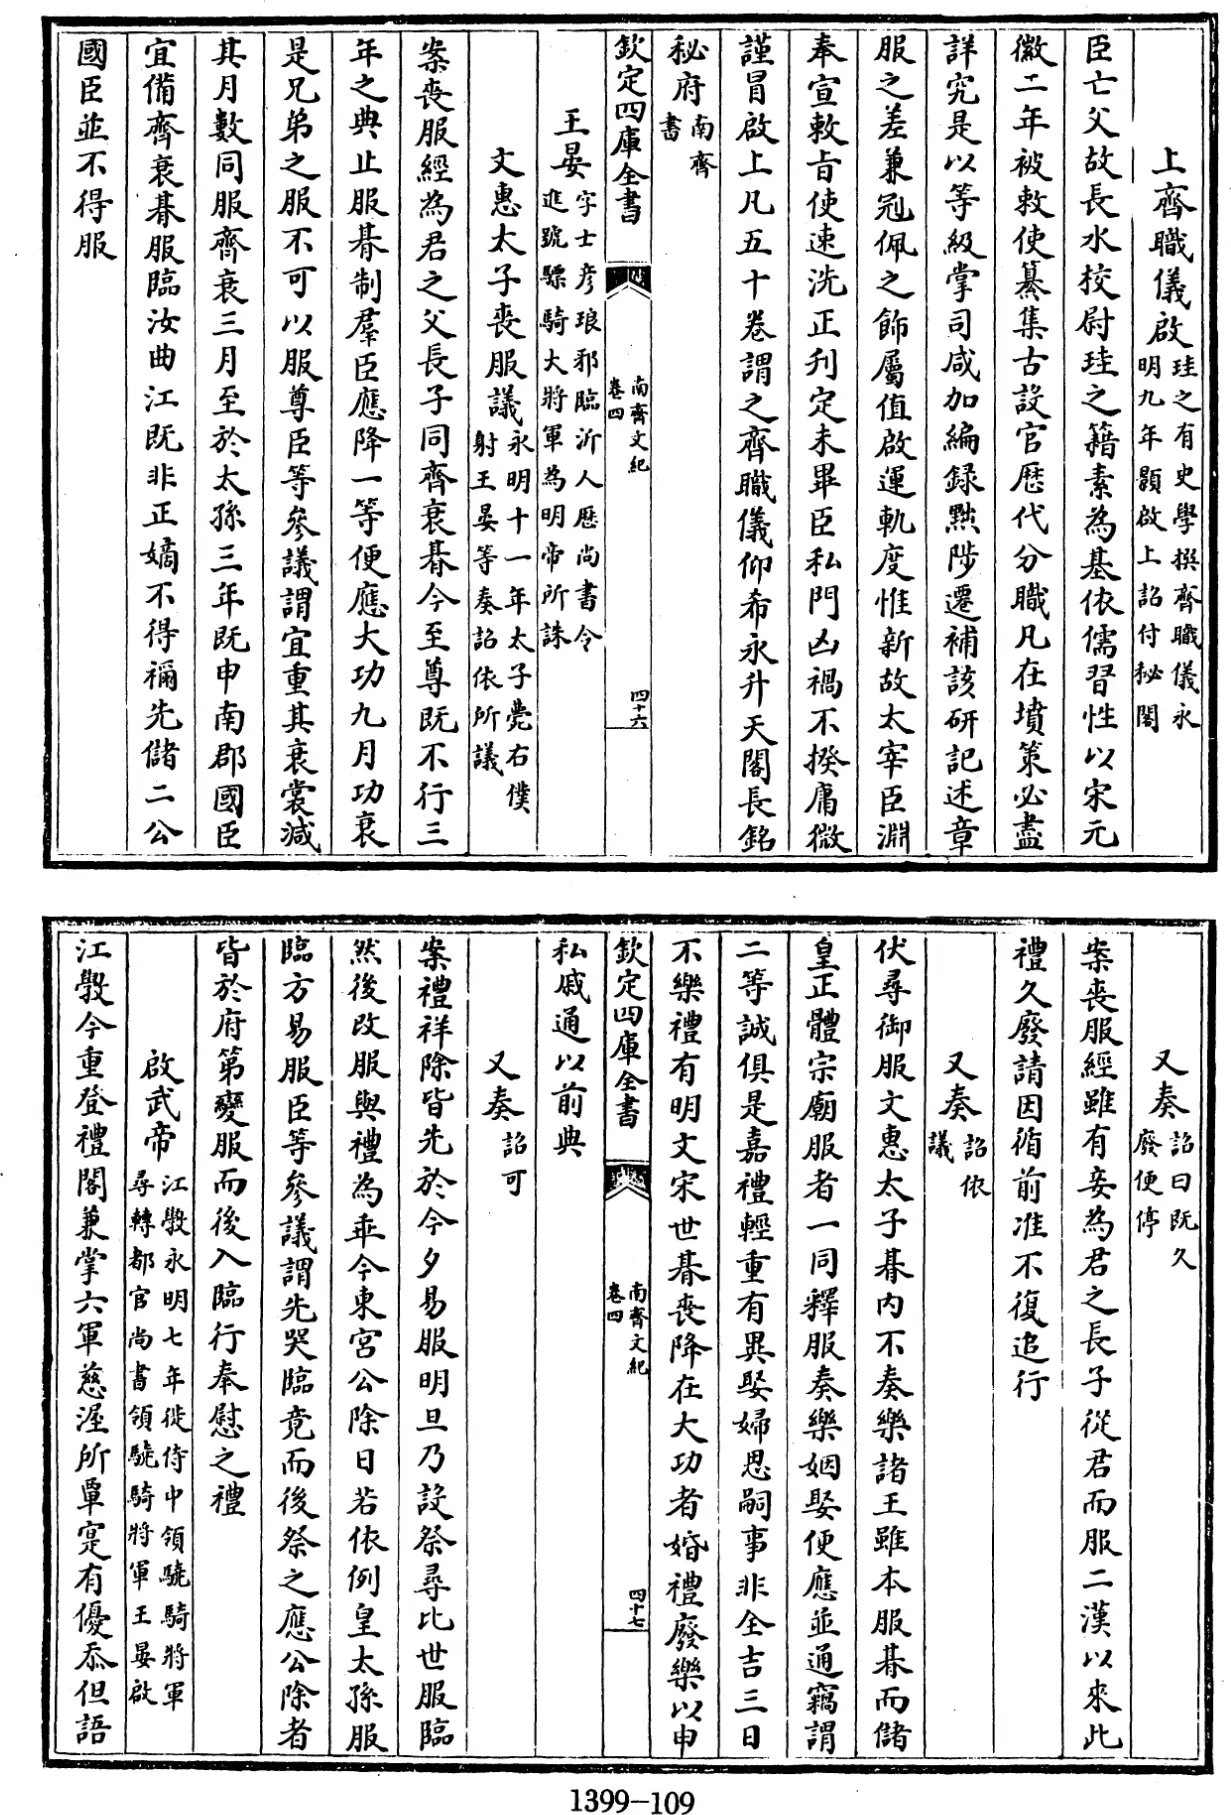 上齊職儀啟珪之有史學撰齊職儀永明九年顥啟上詔付秘閣
臣亡父故長水校尉珪之籍素為基依儒習性以宋元
徽二年被敕使纂集古設官歷代分職凡在墳策必盡
詳究是以等級掌司咸加編録黜陟遷補該研記述章
服之差兼冠佩之飾屬值啟運軌度惟新故太宰臣淵
奉宣敕旨使速洗正刋定未畢臣私門凶禍不揆庸微
謹冒啟上凡五十卷謂之齊職儀仰希永升天閣長銘
秘府南齊書
欽定四庫全書
南齊文紀
卷四
四十六
王晏字士彦琅邪臨沂人歷尚書令進號驃騎大將軍為明帝所誅
文惠太子喪服議永明十一年太子薨右僕射王晏等奏詔依所議
案喪服經為君之父長子同齊衰朞今至尊既不行三
年之典止服朞制羣臣應降一等便應大功九月功衰
是兄弟之服不可以服尊臣等參議謂宜重其衰裳減
其月數同服齊衰三月至於太孫三年既申南郡國臣
宜備齊衰朞服臨汝曲江既非正嫡不得禰先儲二公
國臣並不得服
又奏詔曰既久廢便停
案喪服經雖有妾為君之長子從君而服二漢以來此
禮久廢請因循前准不復追行
又奏詔依議
伏尋御服文惠太子朞内不奏樂諸王雖本服朞而儲
皇正體宗廟服者一同釋服奏樂姻娶便應並通竊謂
二等誠俱是嘉禮輕重有異娶婦思嗣事非全吉三日
不樂禮有明文宋世朞喪降在大功者婚禮廢樂以申
欽定四庫全書
南齊文紀
卷四
四十七
私戚通以前典
又奏詔可
案禮祥除皆先於今夕易服明旦乃設祭尋比世服臨
然後改服與禮為乖今東宮公除日若依例皇太孫服
臨方易服臣等參議謂先哭臨竟而後祭之應公除者
皆於府第變服而後入臨行奉慰之禮
啟武帝江斅永明七年徙侍中領驍騎將軍尋轉都官尚書領驍騎將軍王晏啟
江斅今重登禮閣兼掌六軍慈渥所覃寔有優忝但語
1399-109